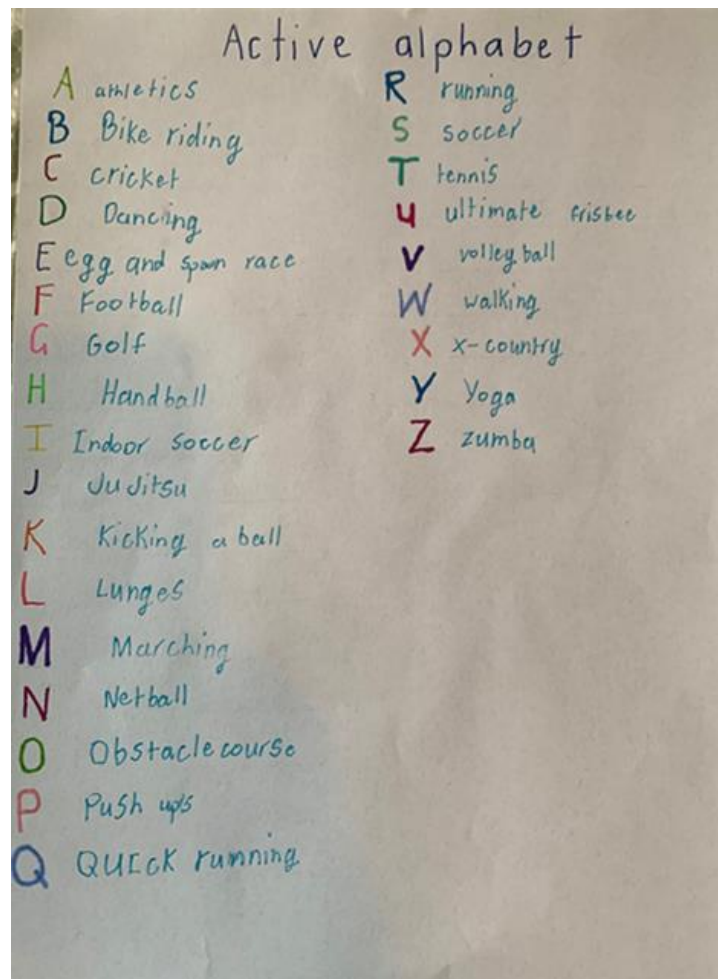 Active alphabet
A athletics
B Bike riding
C cricket
D Dancing
E egg and spoon race
F Football
G Golf
H Handball
I Indoor soccer
J Ju Jitsu
K Kicking a ball
L Lunges
M Marching
N Netball
O Obstacle course
P Push ups
Q QUICK running
R running
S soccer
T tennis
U ultimate frisbee
V volley ball
W walking
X x-country
Y Yoga
Z zumba